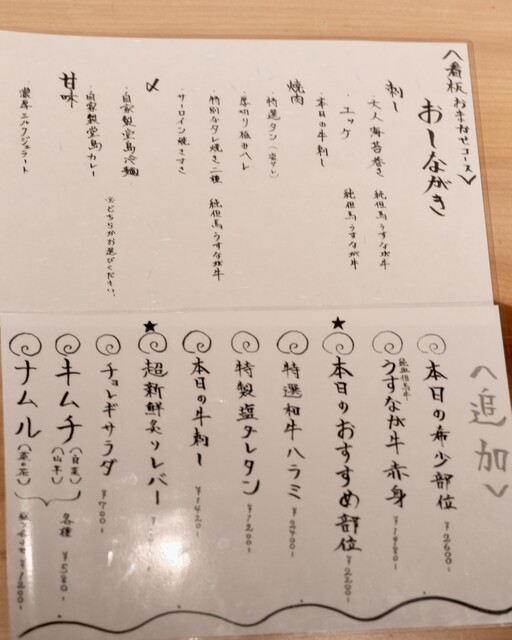 〈看板 おまかせコース〉
おしながき
刺し
・大人の海苔巻き 純但馬うすなが牛
・ユッケ 純但馬うすなが牛
・本日の牛刺し
焼肉
・特選タン
・厚切り極みヘレ
・特別なタレ焼き二種 純但馬うすなが牛
・サーロイン焼きすき
〆
・自家製堂島冷麺
・自家製堂島カレー
※どちらかお選びください。
甘味
・濃厚ミルクジェラート
〈追加〉
本日の希少部位 ¥2600-
うすなが牛 赤身 ¥1980-
★本日のおすすめ部位 ¥2200-
特選和牛ハラミ ¥2400-
特製塩タレタン ¥1200-
本日の牛刺し ¥1420-
★超新鮮炙りレバー
チョレギサラダ ¥700-
キムチ (白菜) (山芋)
ナムル (菜の花)
各種 ¥580-
¥1200-